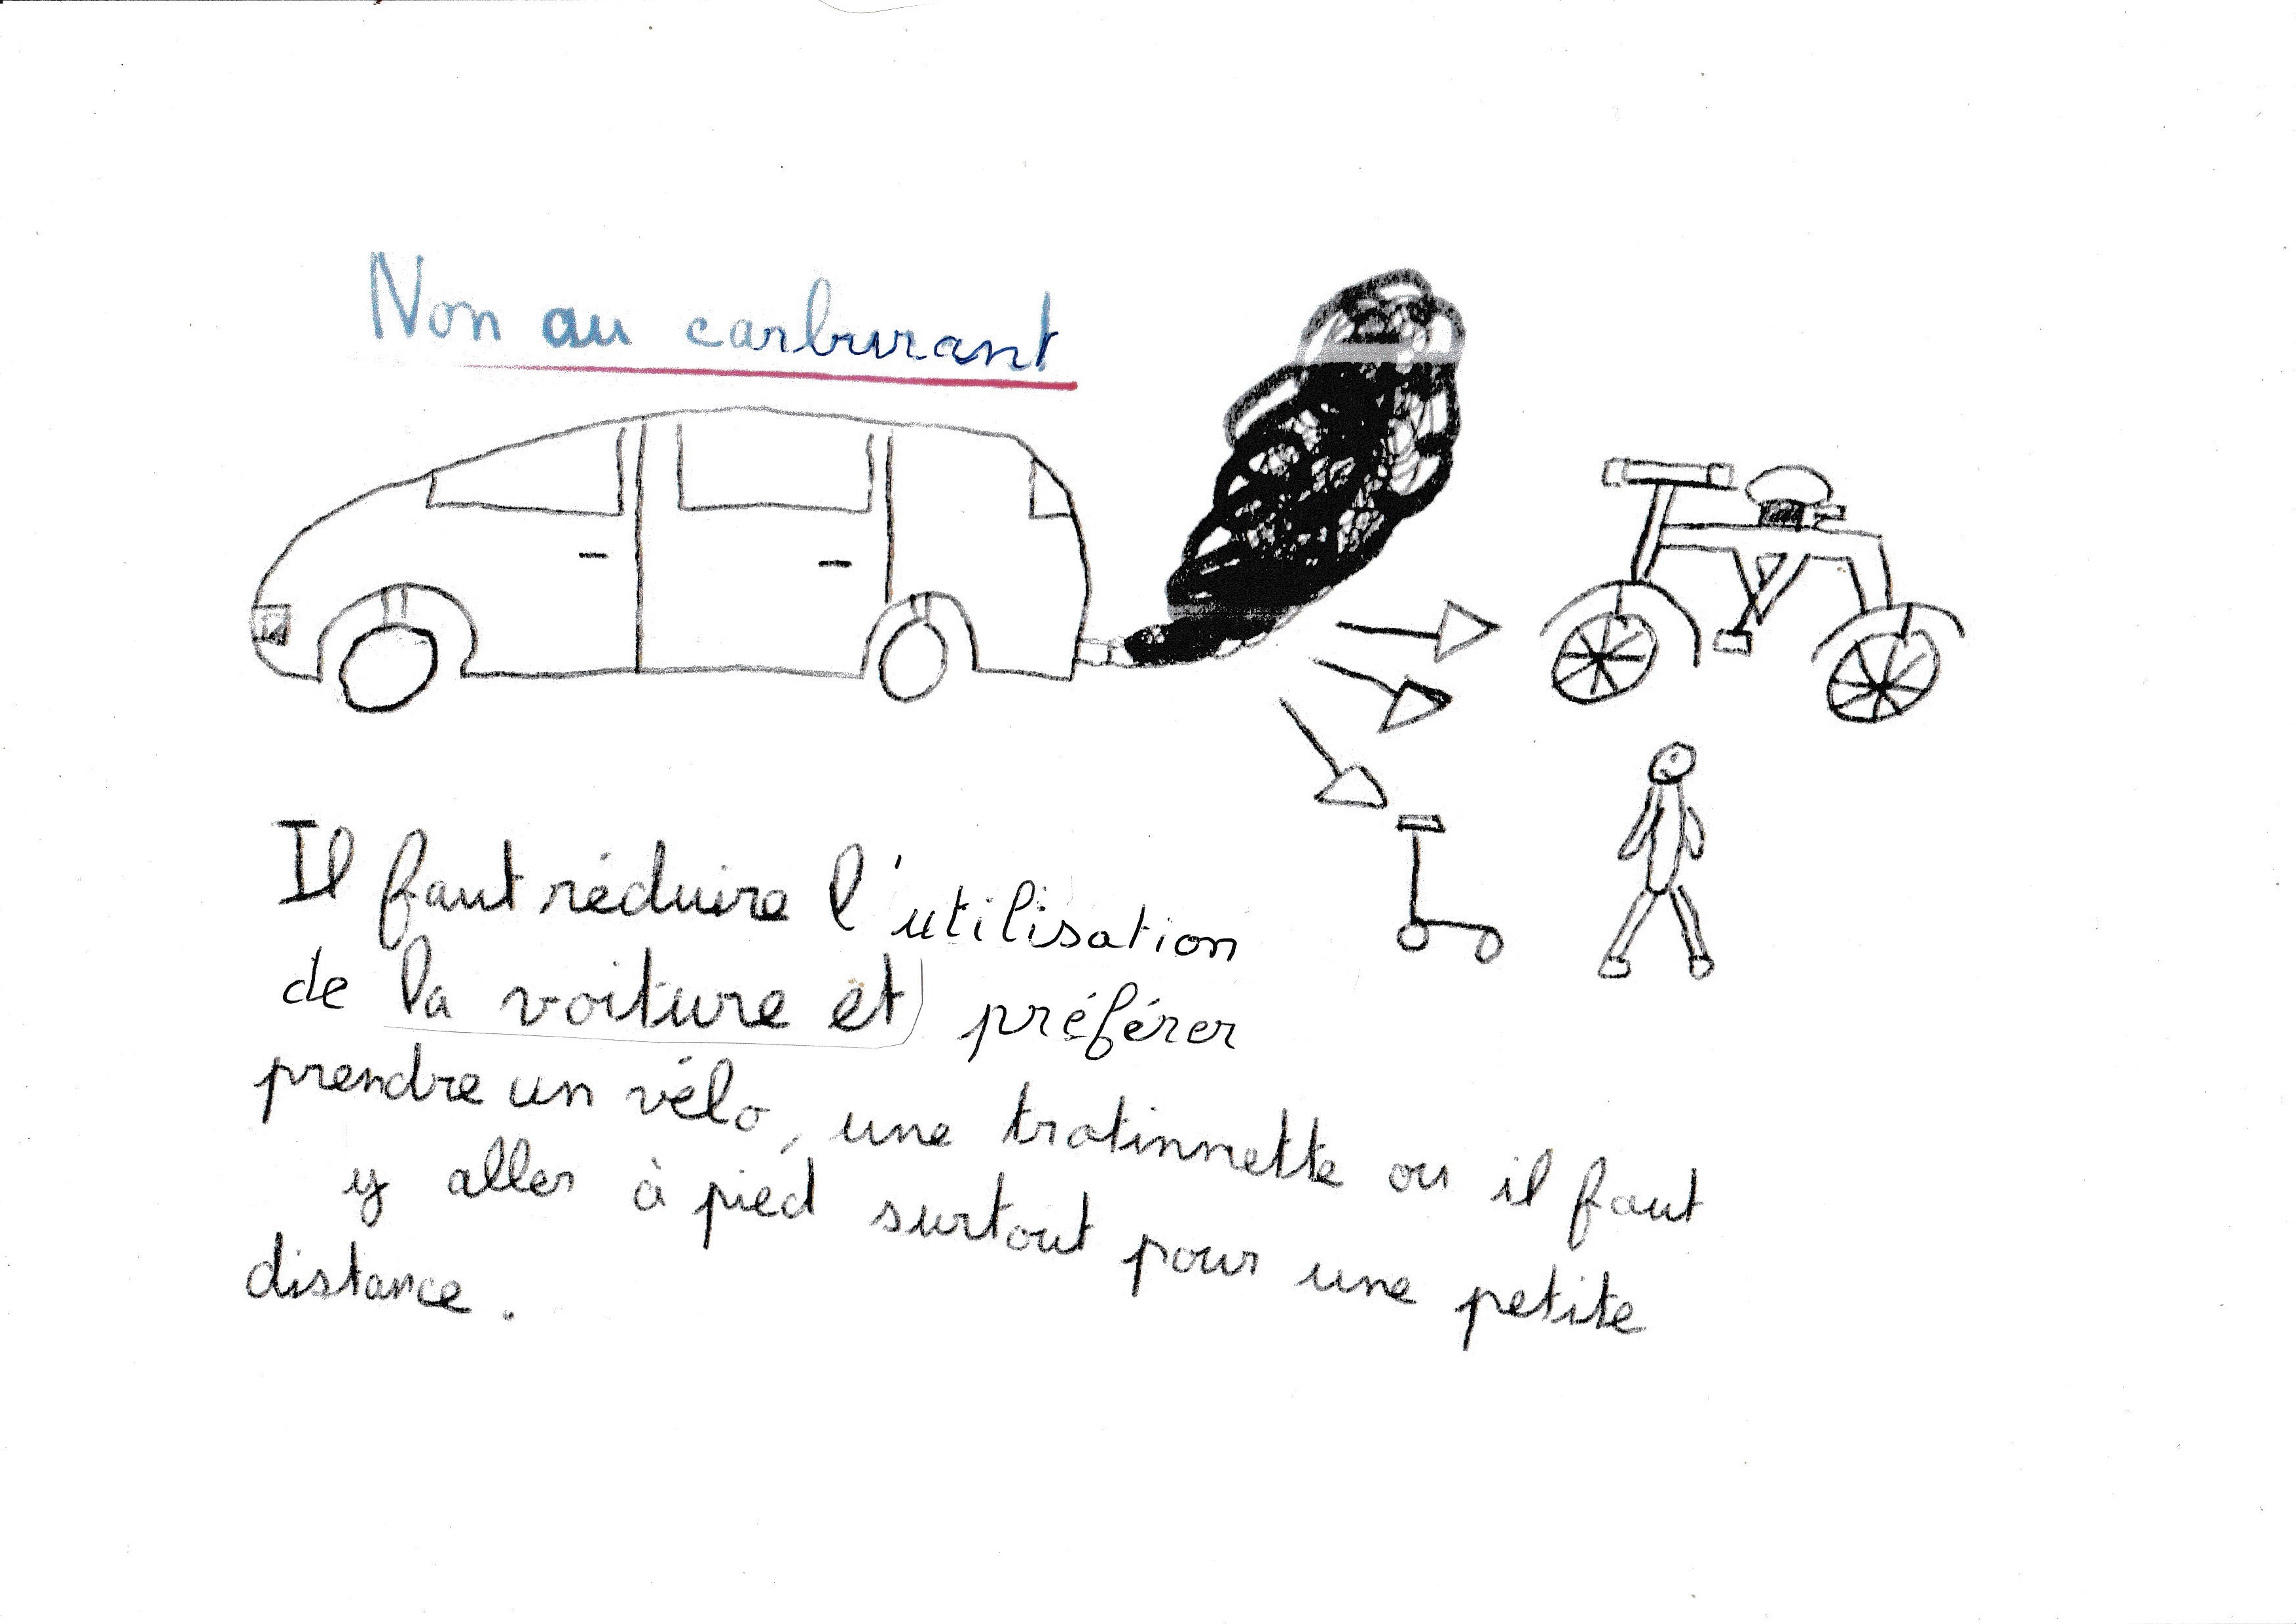 Non au carburant
Il faut réduire l'utilisation
de la voiture et préférer
prendre un vélo, une trotinnette ou il faut
y aller à pied surtout pour une petite
distance.